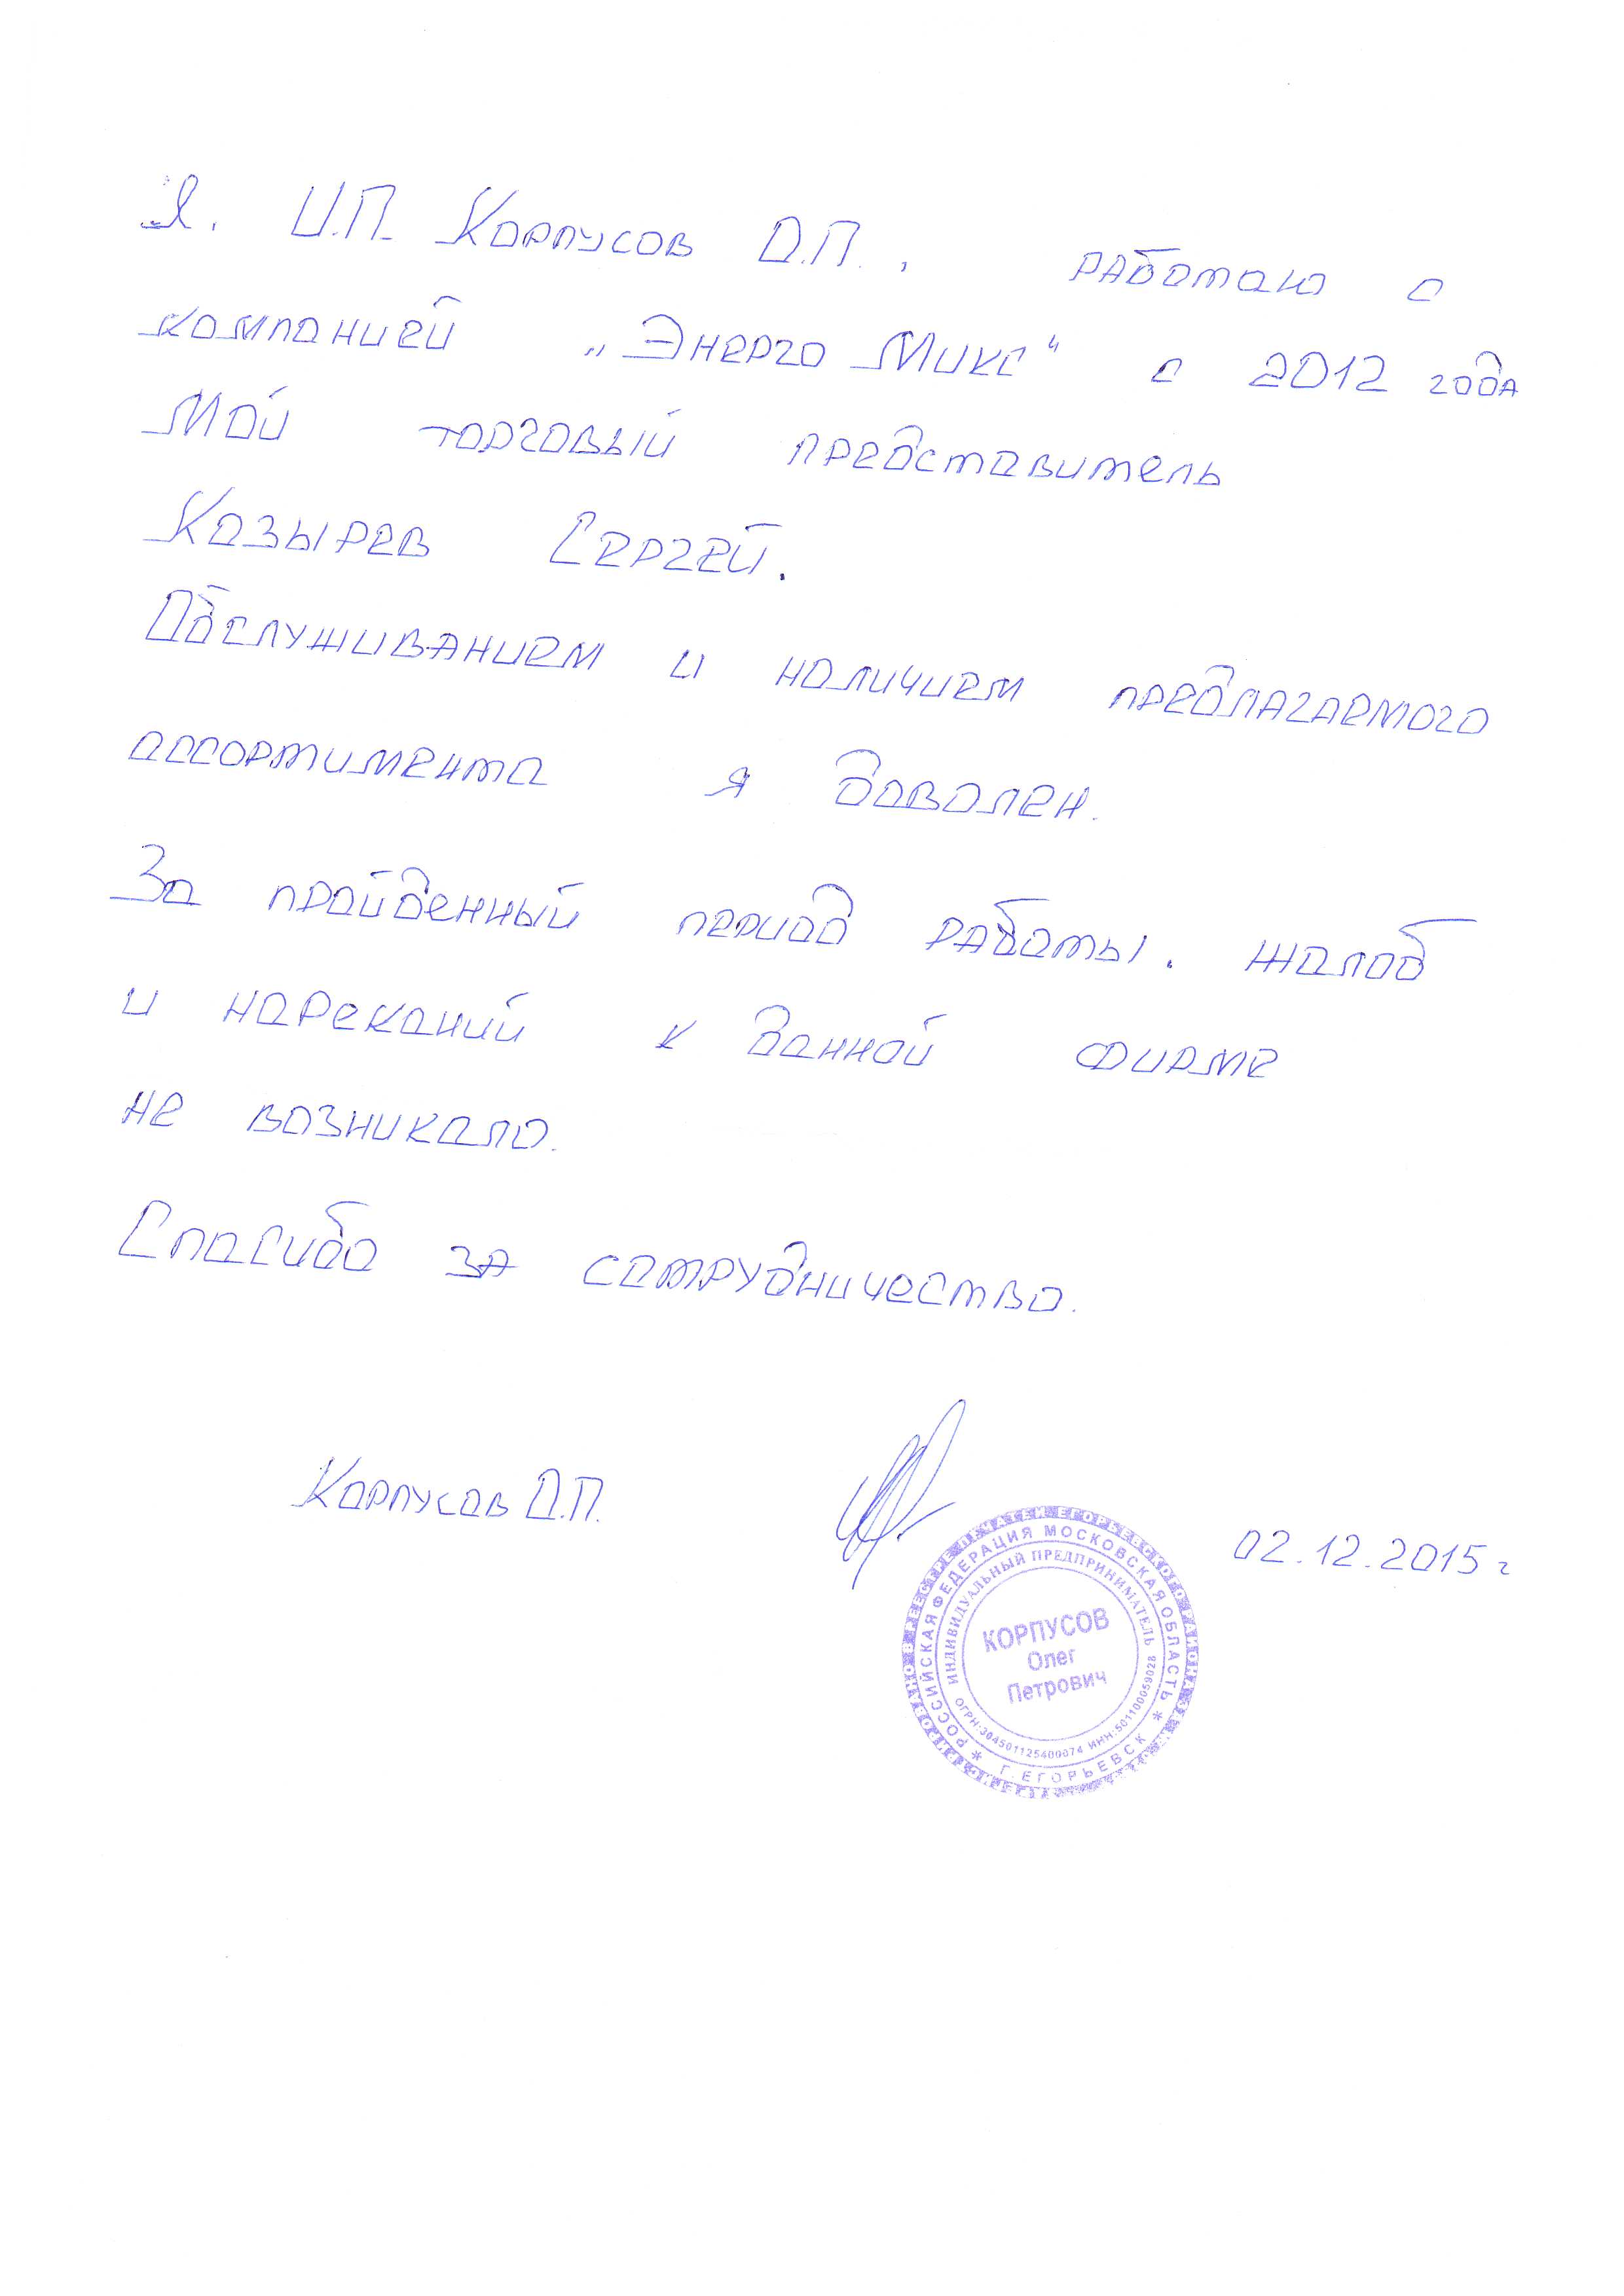 Я. И.П. Корпусов О.П., работаю с
компанией „Энерго Микс“ с 2012 года
Мой торговый представитель
Козырев Сергей.
Обслуживанием и наличием предлагаемого
ассортимента я доволен.
За пройденный период работы. жалоб
и нареканий к данной фирме
не возникало.
Спасибо за сотрудничество.
Корпусов О.П.
02.12.2015г
РОССИЙСКАЯ ФЕДЕРАЦИЯ МОСКОВСКАЯ ОБЛАСТЬ
* Г. ЕГОРЬЕВСК *
ИНДИВИДУАЛЬНЫЙ ПРЕДПРИНИМАТЕЛЬ
ОГРН:304501125400074 ИНН:501100059028
КОРПУСОВ
Олег
Петрович